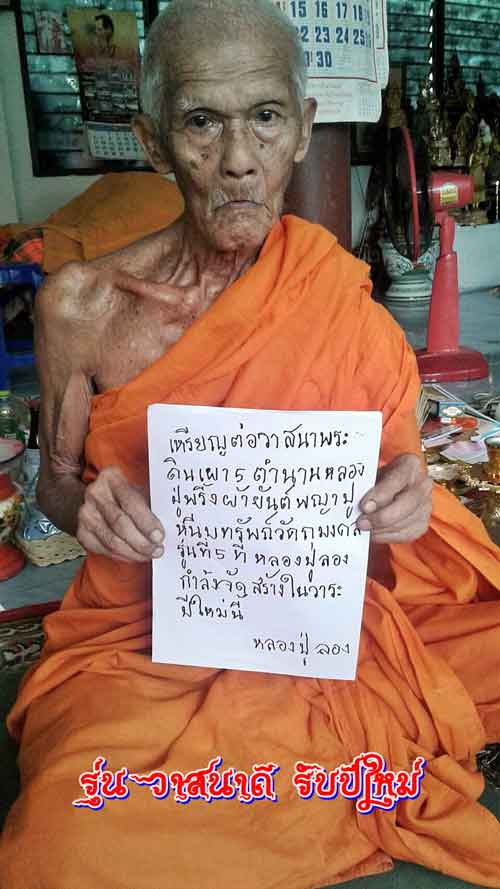 15 16 17 18
22 23 24 25
30
เหรียญต่อวาสนาพระ
ดินเผา5 ตำนานหลวง
ปู่พริ้ง ผ้ายันต์ พญาปู
หนีบทรัพย์วัดกุมงคล
รุ่นที่5 ที่ หลวงปู่ลอง
กำลังจัดสร้างในวาระ
ปีใหม่นี้
หลวงปู่ ลอง
รุ่น วาสนาดี รับปีใหม่